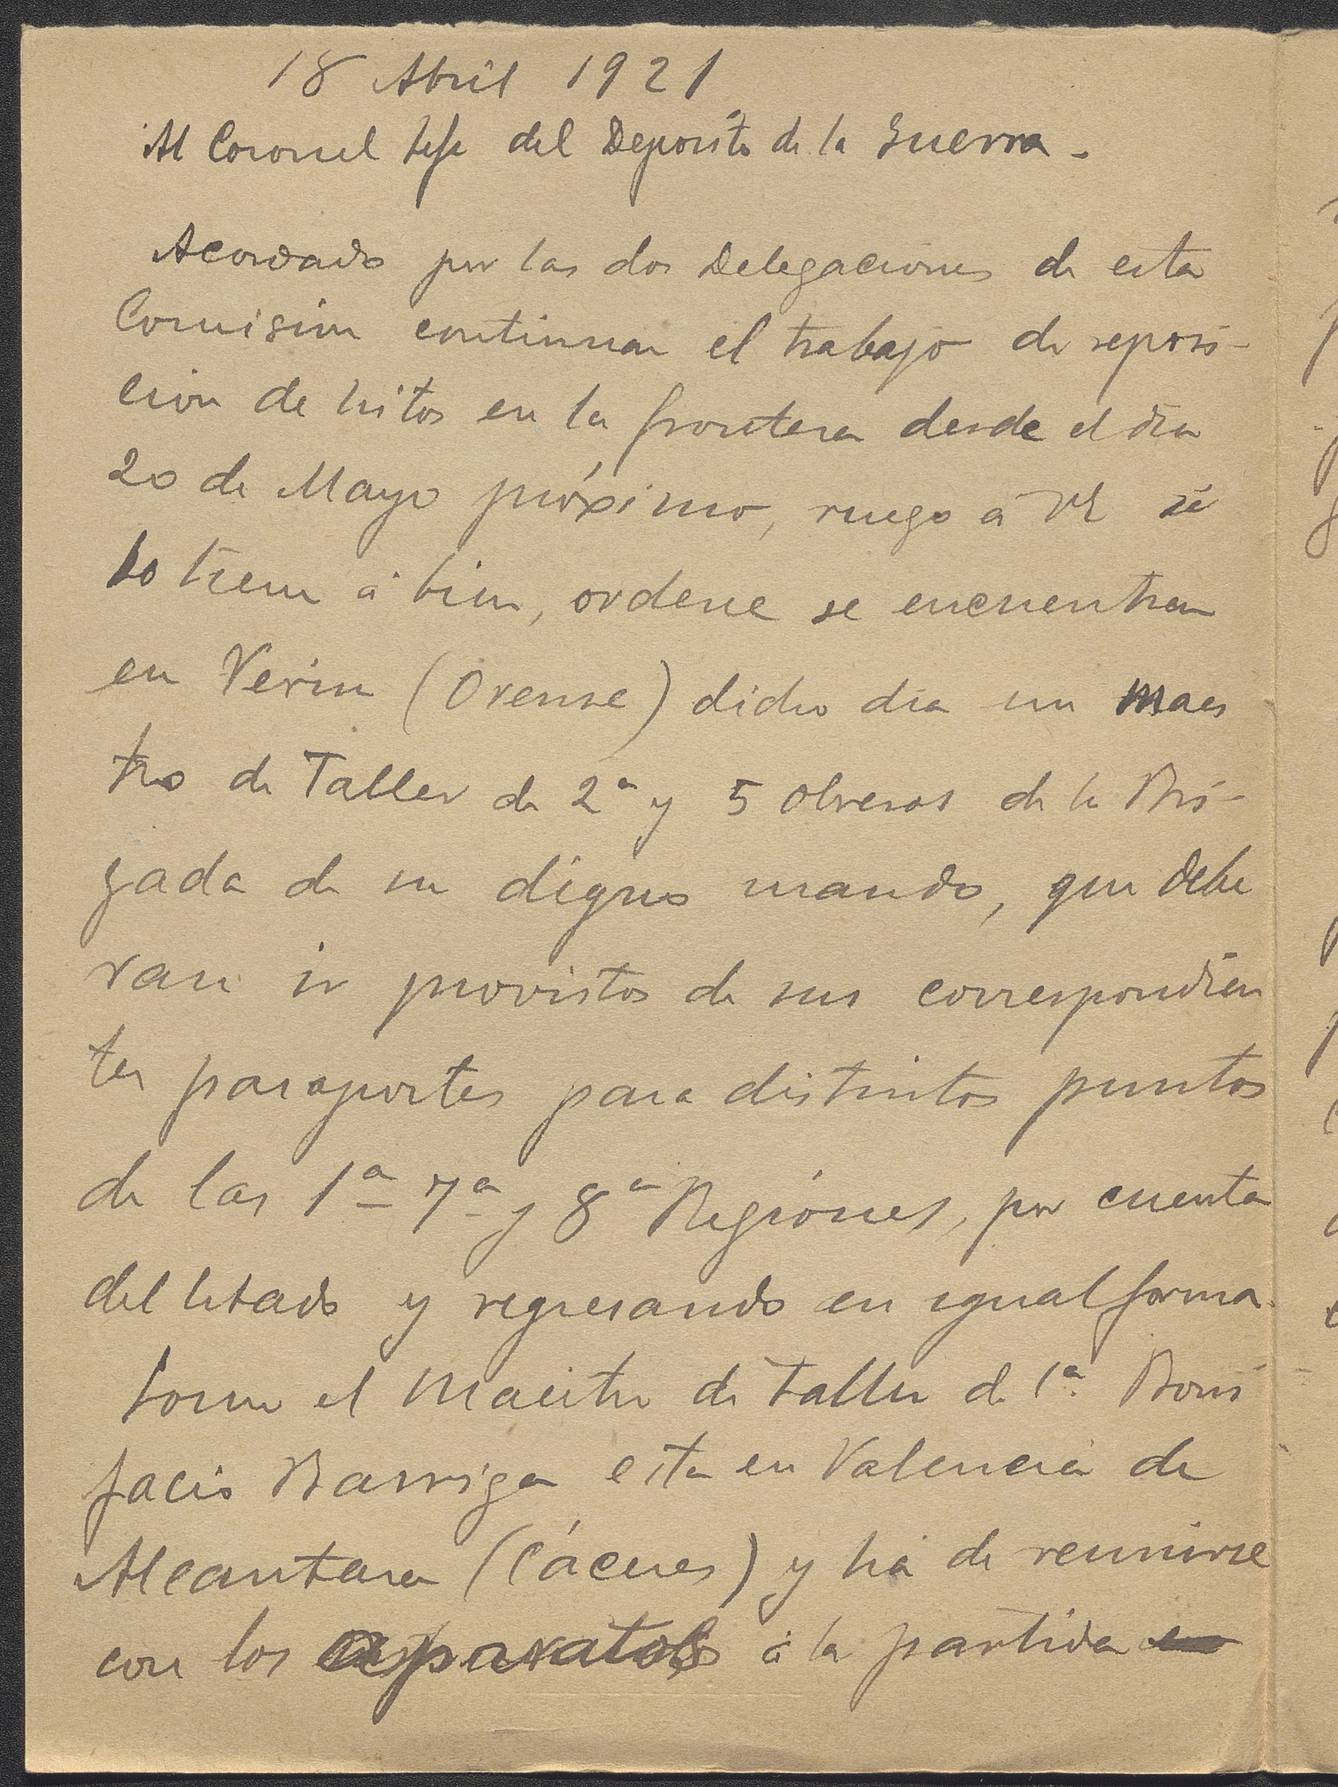 18 Abril 1921
Al Coronel Jefe del Deposito de la Guerra.
Acordado por las dos Delegaciones de esta
Comisión continuar el trabajo de reposi-
ción de hitos en la frontera desde el dia
20 de Mayo próximo, ruego á VE si
lo tiene á bien, ordene se encuentren
en Verin (Orense) dicho dia un Maes
tro de Taller de 2ª y 5 obreros de la Bri-
gada de su digno mando, que debe
ran ir provistos de sus correspondien
tes pasaportes para distintos puntos
de las 1ª 7ª y 8ª Regiones, por cuenta
del Estado y regresando en igual forma.
Como el Maestro de Taller de 1ª Boni
facio Barriga esta en Valencia de
Alcantara (Cáceres) y ha de reunirse
con los aparatos á la partida